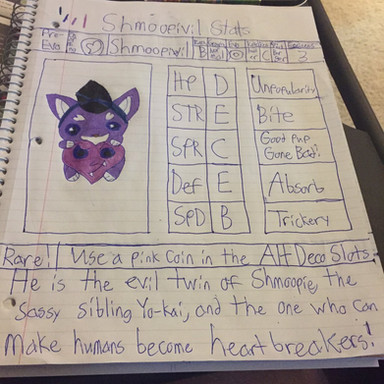 Shmoopivil Stats
Pre-
Evo
Shmoopivil
C
3
HP D Unpopularity
STR E Bite
SPR C Good Pup
Gone Bad!
Def E Absorb
SPD B Trickery
Rare!! Use a pink coin in the Alt Deco Slots.
He is the evil twin of Shmoopie, the
sassy sibling Yo-kai, and the one who can
make humans become heartbreakers!